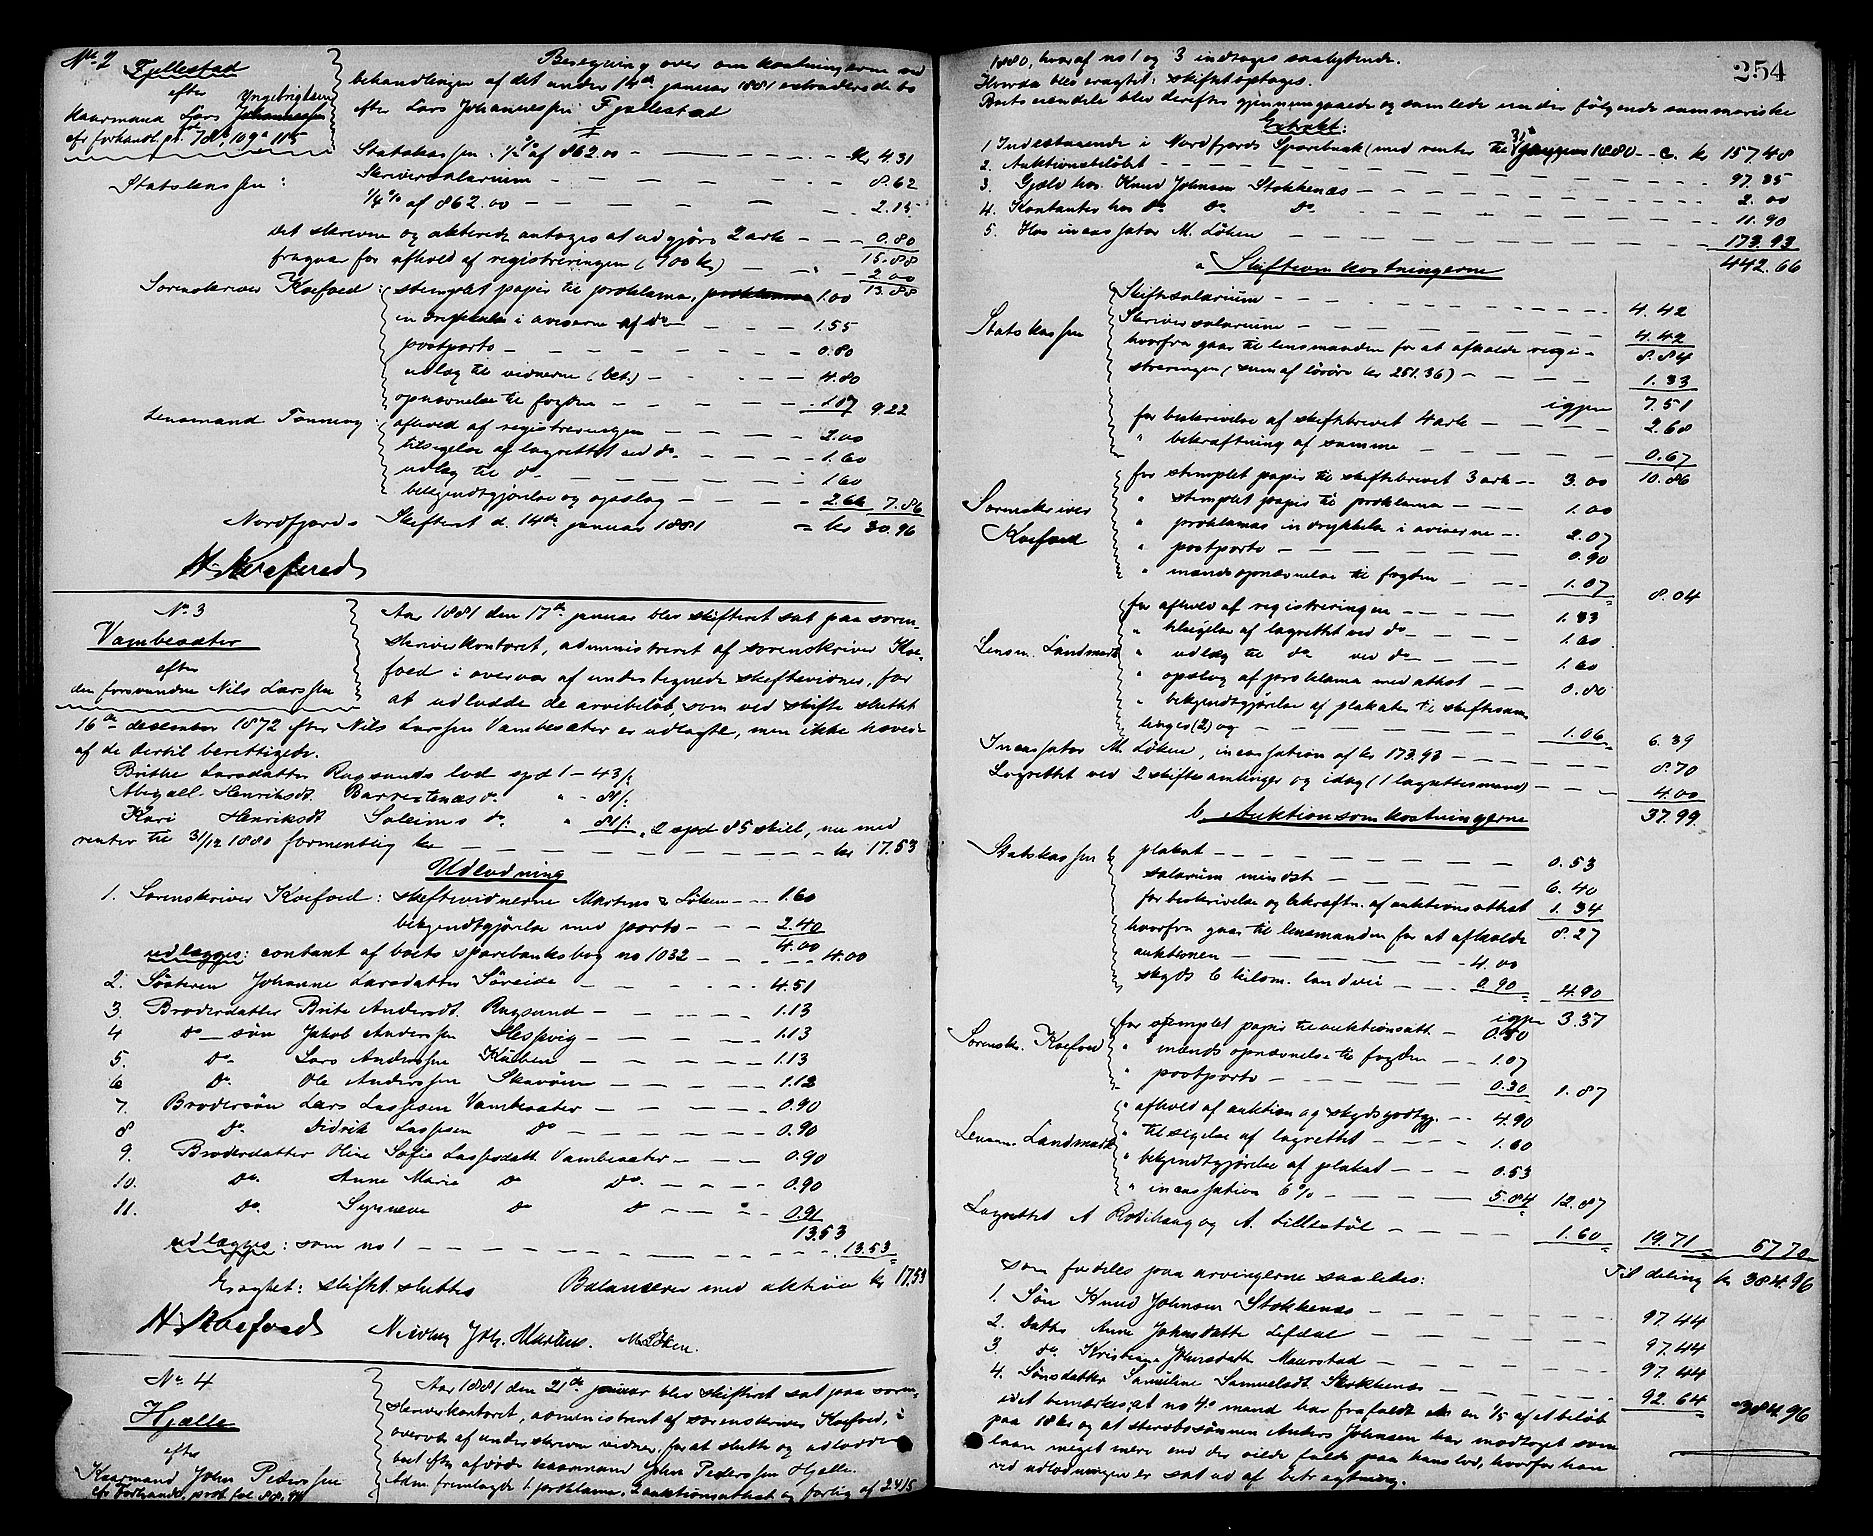 No 2
Fjellestad
efter
Yngebrigtsen
kaarmand Lars Johannessen
cfr forhandl. pr. fol 78b, 109a 115
Beregning over omkostningerne ved
behandlingen af det under 14de januar 1881 extraderede bo
efter Lars Johannessen Fjellestad
Statskassen: ½ % af 862.00 — kr 4.31
Statskassen: Skriversalarium — 8.62
¼ % af 862.00 — 2.15
det skrevne og akterede antages at udgjøre 2 ark — 0.80
15.88
fragaar for afhold af registreringen (700 kr) — 2.00
13.88
Sorenskriver Koefoed: stemplet papir til proklama, proklama 1.00
indrykkelse i aviserne af do — 1.55
postporto — 0.80
udlæg til vidnerne (bet.) — 4.80
opnævnelse til fogden — 1.07 9.22
Lensmand Tonning: afhold af registreringen — 2.00
tilsigelse af lagrettet ved do — 1.60
udlæg til do — 1.60
bekjendtgjørelse og opslag — 2.66 7.86
Nordfjords Skifteret d. 14de januar 1881 = kr 30.96
H. Koefoed
No 3
Vambesæter
efter
den forsvundne Nils Larssen
Aar 1881 den 17de januar blev skifteret sat paa soren-
skriverkontoret, administreret af sorenskriver Koe-
foed i overvær af undertegnede skiftevidner, for
at udlodde de arvebeløb, som ved skifte sluttet
16de desember 1872 efter Nils Larssen Vambesæter er udlagte, men ikke hævet
af de dertil berettigede.
Brithe Larsdatter Rugsunds lod spd 1 - 43 /:
Abigael Henriksdt. Barrestenæs do " - 81 /:
Kari Henriksdt Soleims do " 81 /: 2 spd 85 skill, nu med
renter til 31/12 1880 formentlig kr — kr 17.53
Udlodning
1. Sorenskriver Koefoed: skiftevidnerne Martens & Løken — 1.60
bekjendtgjørelse med porto — 2.40
4.00
udlægges: contant af boets sparebanksbog no 1032 — 4.00
2. Søsteren Johanne Larsdatter Søreide — 4.51
3. Broderdatter Brite Andersdt. Rugsund — 1.13
4 do — søn Jakob Anderssen — 1.13
5. do Lars Anderssen — 1.13
6 do Ole Anderssen — 1.12
7. Brodersøn Lars Lassesen Vambesæter — 0.90
8 do Didrik Lassesen do — 0.90
9. Broderdatter Oline Sofie Lassesdatt. Vambesæter — 0.90
10. do Anne Marie do do — 0.90
11. do Synneve do do — 0.91
13.53
udlægges: som no 1 — 13.53
Eragtet: skiftet sluttes Balancerer med aktiva kr 17.53
H. Koefoed Nicolay Joh. Martens. M. Løken.
No 4
Hjelle
efter
Kaarmand John Pederssen
cfr Forhandl. prot. fol 88, 94
Aar 1881 den 21de januar blev skifteret sat paa soren-
skriverkontoret, administreret af sorenskriver Koefoed, i
overvær af underskrevne vidner, for at slutte og udlodde
boet efter afdøde kaarmand John Pederssen Hjelle.
Adm. fremlagde 1. proklama, 2 auktionsattest og forlig af 24/5
254
1880, hvoraf no 1 og 3 indtages saalydende.
Hvorda blev eragtet: skiftet optages.
Boets eiendele blev derefter gjennemgaaede og samlede under følgende summariske
Extrakt:
1 Indestaaende i Nordfjords Sparebank (med renter til 31te 1880 — c. kr 157.48
2. Auktionsbeløbet — 97.35
3. Gjæld hos Knud Johnsen Stokkenæs — 2.00
4. Kontanter hos do do do — 11.90
5. Hos incassator M. Løken — 173.93
442.66
a Skifteomkostningerne
Skiftesalarium — 4.42
Statskassen Skriversalarium — 4.42
8.84
hvorfra gaar til lensmanden for at afholde regi-
streringen (sum af løsøre kr 251.36) — 1.33
igjen 7.51
for beskrivelse af skiftebrevet 4 ark — 2.68
" bekræftning af samme — 0.67
10.86
Sorenskriver Koefoed
for stemplet papir til skiftebrevet 3 ark — 3.00
" stemplet papir til proklama — 1.00
" proklamas indrykkelse i aviserne — 2.07
" postporto — 0.90
" mændsopnævnelse til fogden — 1.07
8.04
Lensm. Landmark
for afhold af registreringen — 1.33
" tilsigelse af lagrettet ved do — 1.60
" udlæg til do ved do — 1.60
" opslag af proklama med attest — 0.80
" bekjendtgjørelse af plakater til skiftesam-
linger (2) og — 1.06 6.39
Incassator M. Løken, incassation af kr 173.93 — 8.70
Lagrettet ved 2 skiftesamlinger og idag (1 lagrettesmand) — 4.00
37.99
b. Auktionsomkostningerne
Statskassen plakat — 0.53
salarium mindst — 6.40
for beskrivelse og bekræftn. af auktionsattest 1.34
8.27
hvorfra gaar til lensmanden for at afholde
auktionen — 4.00
skyds 6 kilom. landvei — 0.90 4.90
igjen 3.37
Sorenskr. Koefoed
for stemplet papir til auktionsatt. — 0.50
" mændsopnævnelse til fogden — 1.07
" postporto — 0.30 1.87
Lensm. Landmark
" afhold af auktion og skydsgodtg. — 4.90
" tilsigelse af lagrettet — 1.60
" bekjendtgjørelse af plakat — 0.53
" incassation 6 % — 5.84 12.87
Lagrettet A Rødihaug og A. Lillestøl — 1.60 19.71 57.70
Til deling kr 384.96
som fordeles paa arvingerne saaledes:
1. Søn Knud Johnsen Stokkenæs — 97.44
2. Datter Anne Johnsdatter Lefdal — 97.44
3. do Kristiane Johnsdatter Maurstad — 97.44
4. Sønsdatter Samuline Samuelsdt. Stokkenæs — 92.64 384.96
idet bemærkes, at no 4s mand har frafaldt en 1/5 af et beløb
paa 18 kr og at sterbosønnen Anders Johnsen har modtaget som
laan meget mere end der vilde falde paa hans lod, hvorfor han
ved udlodningen er sat ud af betragtning.